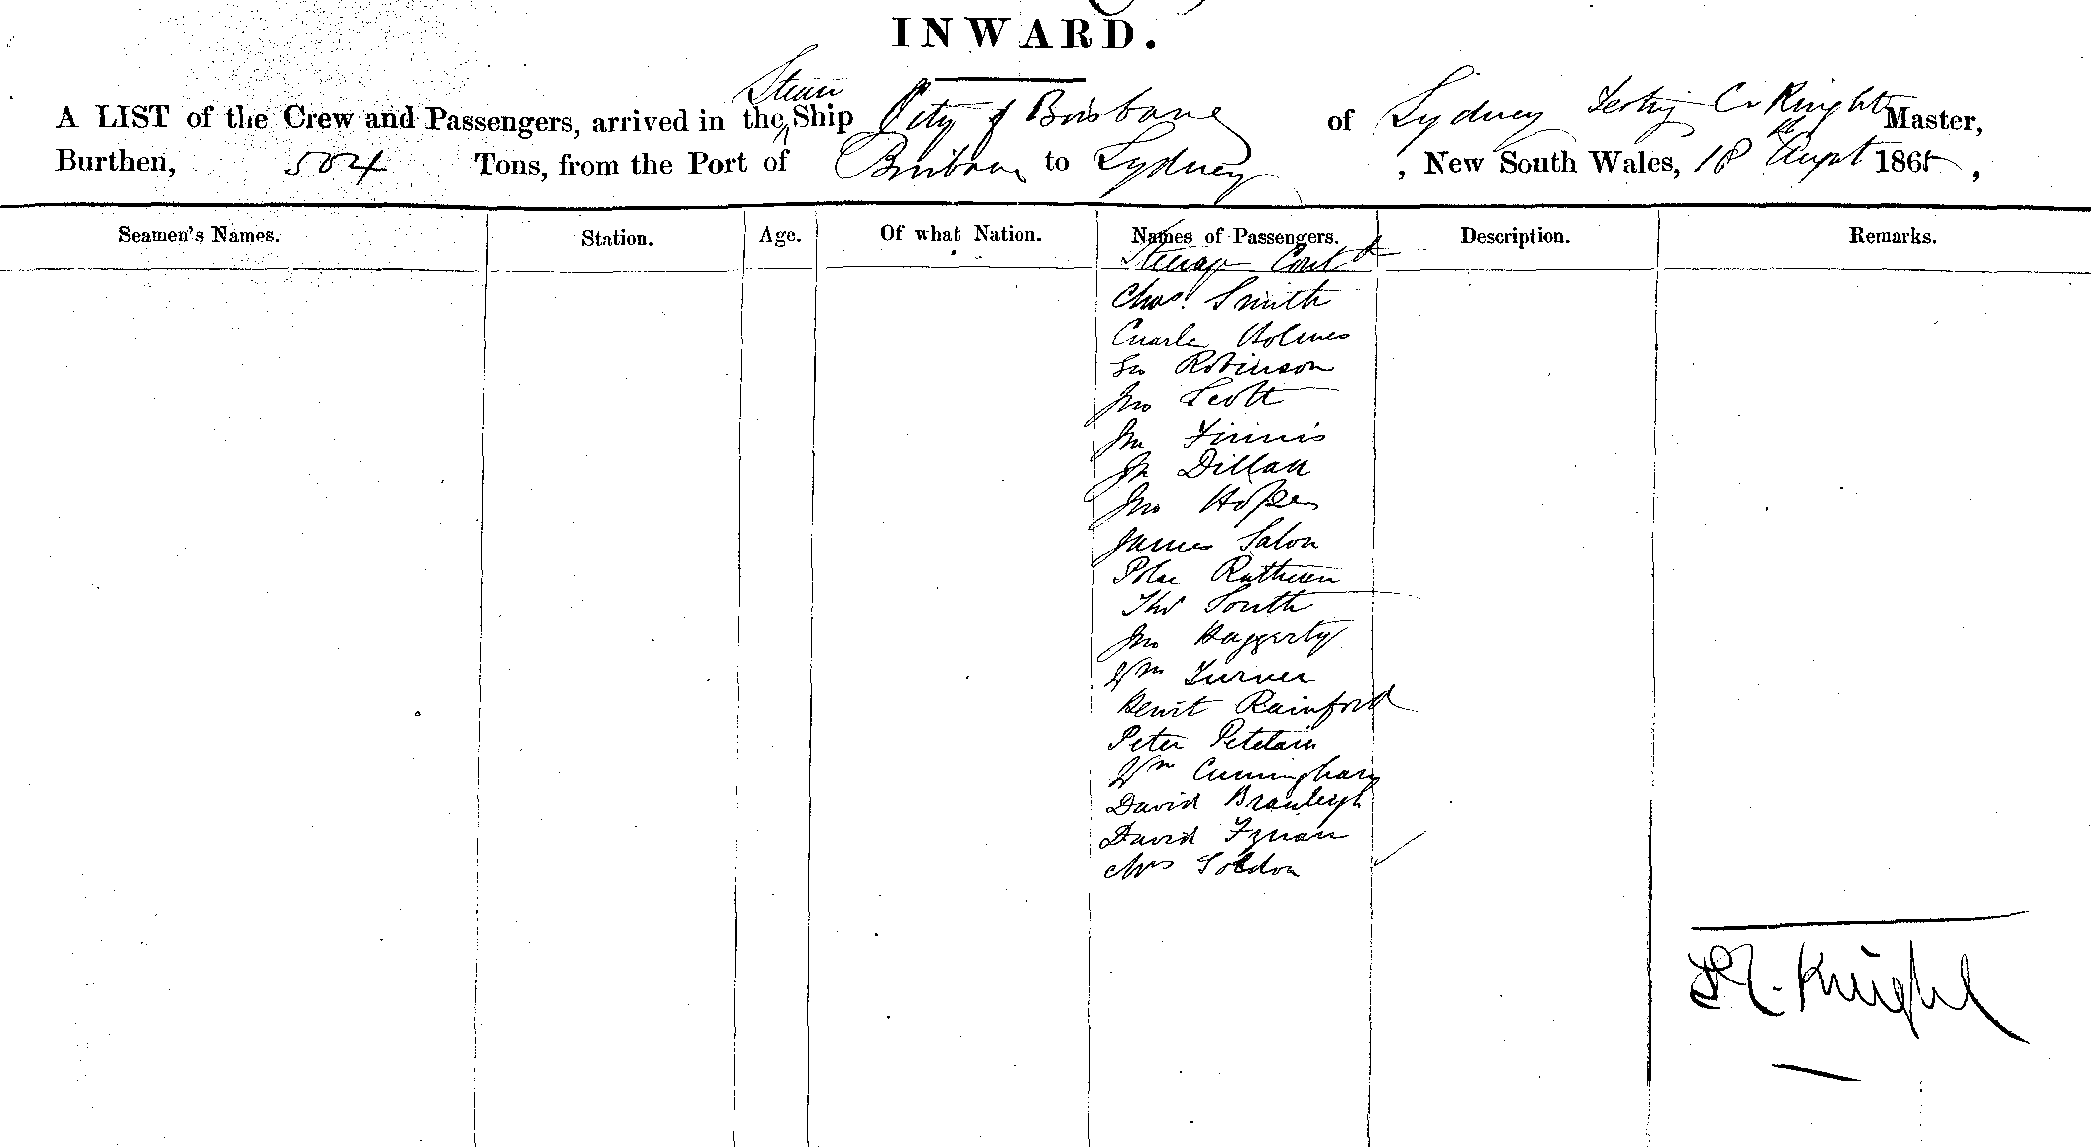 INWARD.
Steam
A LIST of the Crew and Passengers, arrived in the Ship City of Brisbane of Sydney Knight Master,
Burthen, 504 Tons, from the Port of Brisbane to Sydney, New South Wales, 18th Augst 1865,
Seamen's Names. Station. Age. Of what Nation. Names of Passengers. Description. Remarks.
Steerage Contd
Chas. Smith
Charle Holmes
Robinson
Jno Scott
Jno Finnis
Jn Dillan
Jno Hopes
James Salon
Ruthven
Thos South
Jno Haggerty
Wm Turner
Rainford
Peter
Wm Cuningham
David Branleigh
David
Mrs Soldon
Knight